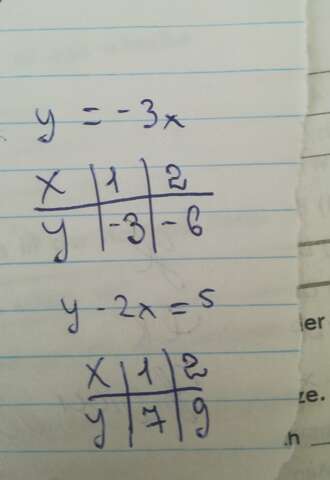 y = -3x
x | 1 | 2
y | -3 | -6
y - 2x = 5
x | 1 | 2
y | 7 | 9
er
e.
n